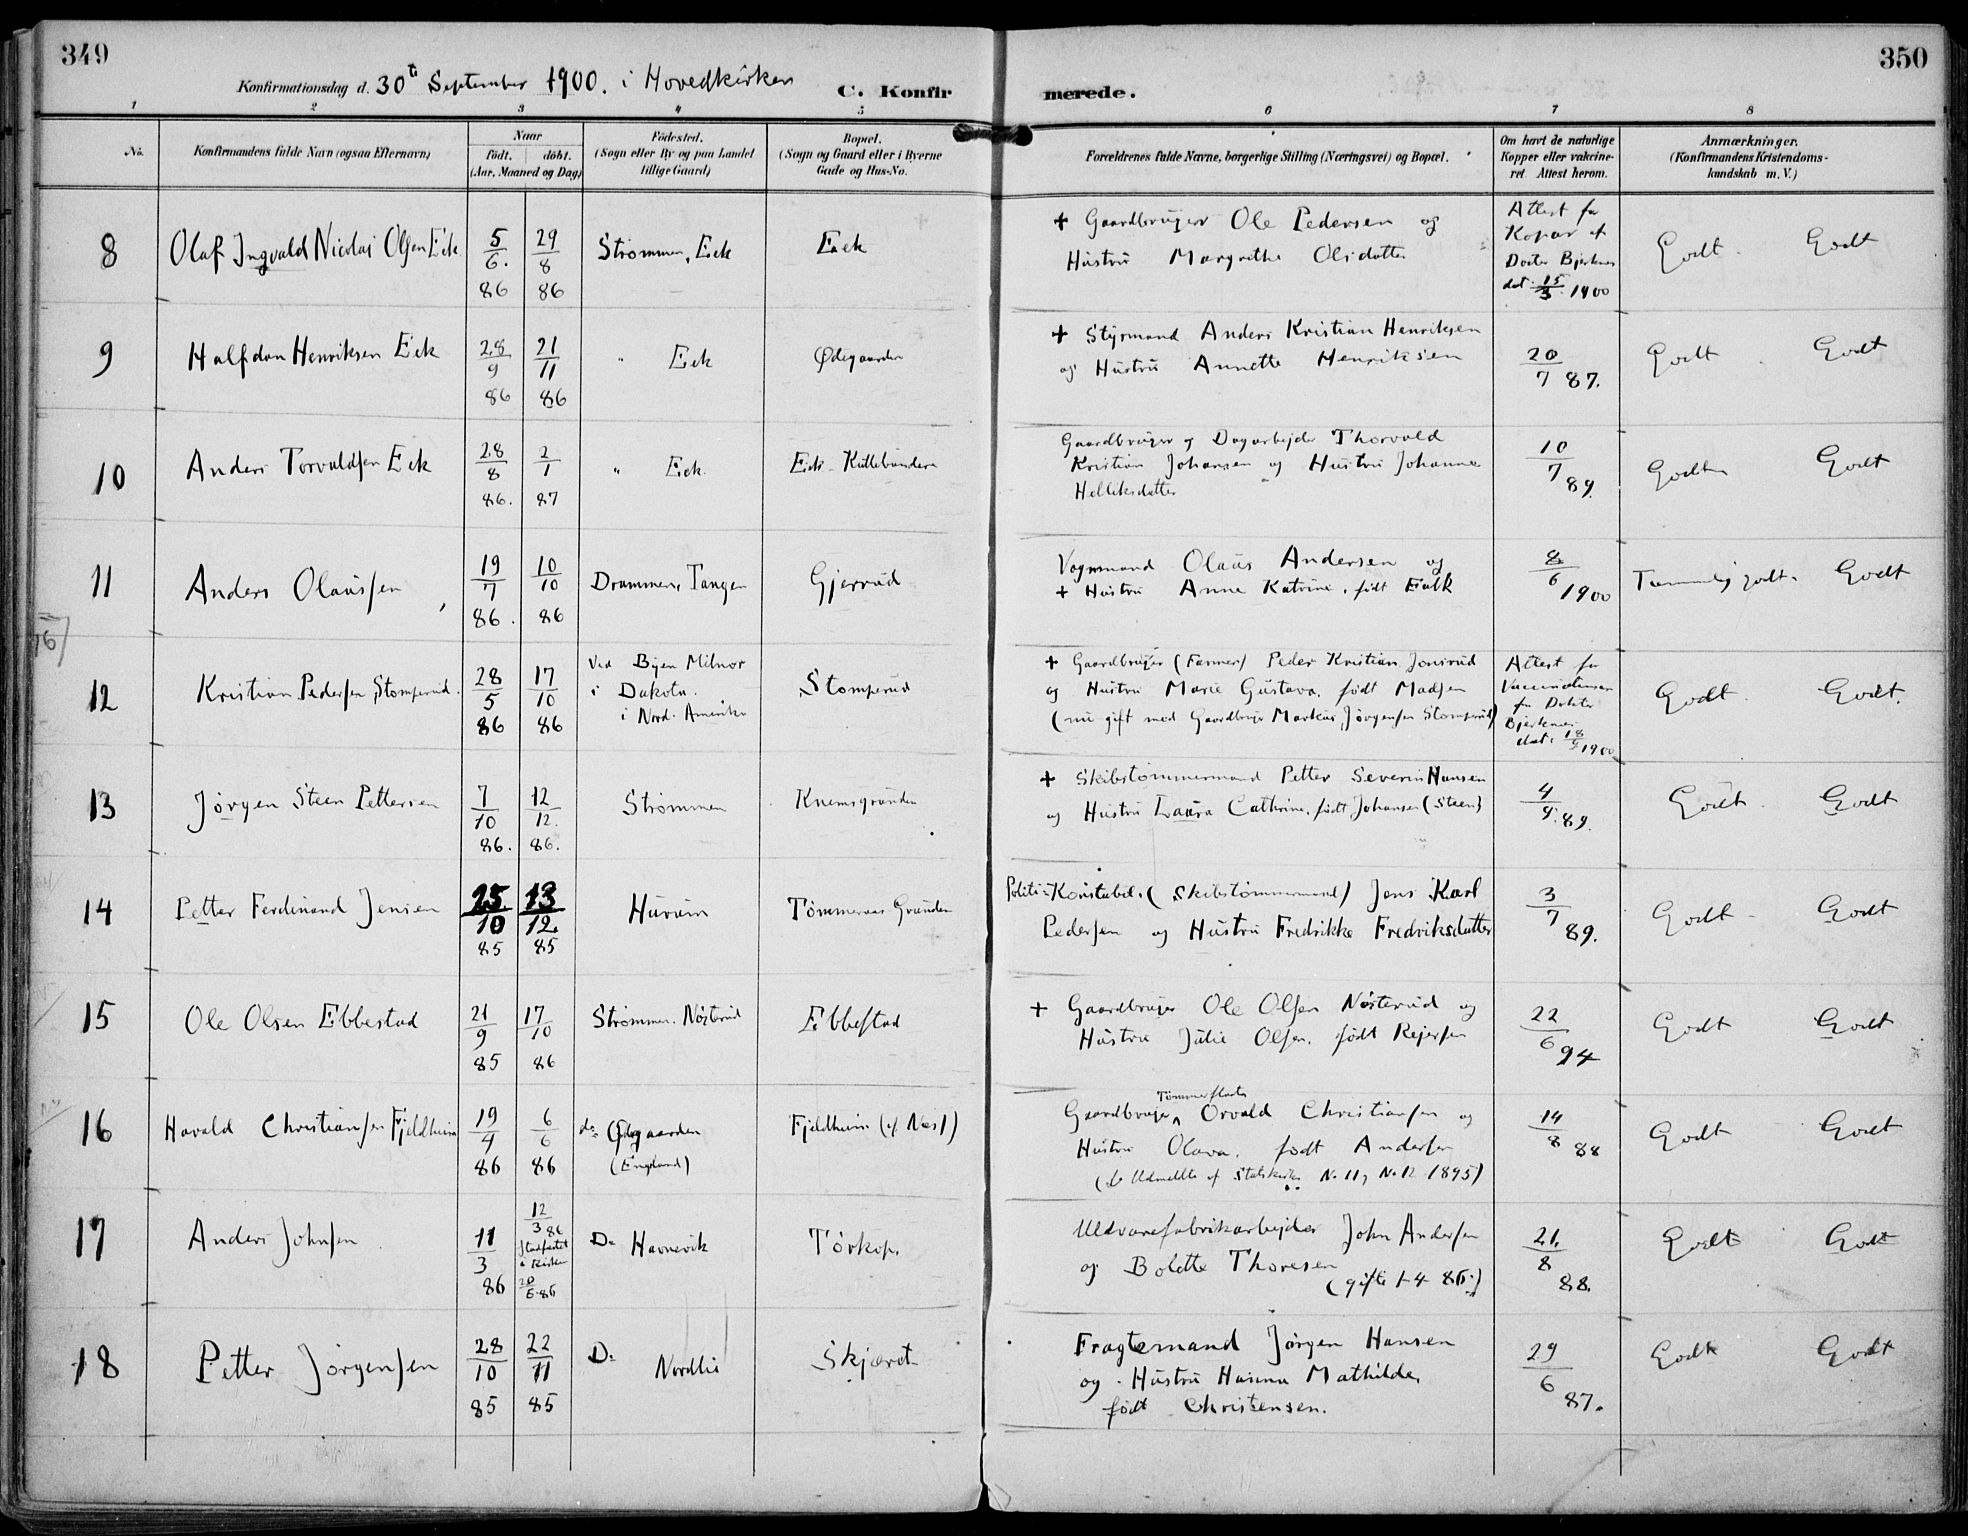 349
350
Konfirmationsdag d. 30te September 1900. i Hovedkirken
C. Konfirmerede.
1 2 3 4 5 6 7 8
No.
Konfirmandens fulde Navn (ogsaa Efternavn)
Naar
födt. döbt.
(Aar, Maaned og Dag)
Födested.
(Sogn eller By og paa Landet
tillige Gaard)
Bopæl.
(Sogn og Gaard eller i Byerne
Gade og Hus-No.
Forældrenes fulde Navne, borgerlige Stilling (Næringsvei) og Bopæl.
Om havt de naturlige
Kopper eller vakcine-
ret. Attest herom.
Anmærkninger.
(Konfirmandens Kristendoms-
kundskab m. V.)
8 Olaf Ingvald Nicolai Olsen Eek 5/6. 86 29/8 86 Strømmen, Eek Eek
+ Gaardbruger Ole Pedersen og
Hustru Margrethe Olsdatter
Attest for
Kopper af
Doctor Bjerknes
dat. 15/3. 1900
Godt. Godt
9 Halfdan Henriksen Eek 28/9 86 21/11 86 " Eek Ødegaarden
+ Styrmand Anders Kristian Henriksen
og Hustru Annette Henriksen
20/7 87. Godt Godt
10 Anders Torvaldsen Eek 28/8 86. 2/1 87 " Eek Eek
Gaardbruger og Dagarbejder Thorvald
Kristian Johansen og Hustru Johanne
Helliksdatter
10/7 89. Godt Godt
11 Anders Olaussen 19/7 86. 10/10 86 Drammen, Tangen Gjerrud
Vognmand Olaus Andersen og
+ Hustru Anne Katrine, født Falk
8/6 1900 Temmelig godt. Godt
12 Kristian Pedersen Stomperud. 28/5 86 17/10 86
Ved Byen Milnor
i Dakota.
i Nord. Amerika
Stomperud
+ Gaardbruger (Farmer) Peder Kristian Jonsrud
og Hustru Marie Gustava, født Madsen
(nu gift med Gaardbruger Markus Jørgensen Stomperud)
Attest for
Vaccinationen
fra Doktor
Bjerknes
dat. 18/9 1900
Godt. Godt.
13 Jørgen Steen Pettersen 7/10 86. 12/12. 86. Strømmen Knemsgrunden
+ Skibstømmermand Petter Severin Hansen
og Hustru Laura Cathrine, født Johansen (Steen)
4/9. 89. Godt. Godt
14 Petter Ferdinand Jensen 25/10 85 13/12. 85 Hurum Tømmeraas Grunden
Politi-Konstabel. (Skibstømmermand) Jens Karl
Pedersen og Hustru Fredrikke Fredriksdatter
3/7 89. Godt Godt
15 Ole Olsen Ebbestad 21/9 85 17/10 86 Strømmen. Nøsterud Ebbestad
+ Gaardbruger Ole Olsen Nøsterud og
Hustru Julie Olsen. født Rejersen
22/6 94 Godt Godt
16 Harald Christiansen Fjeldheim 19/4 86 6/6 86
do Ødegaarden
(Engelund)
Fjeldheim (af Næs)
Tømmerfløder
Gaardbruger Orvald Christiansen og
Hustru Olava. født Andersen
(do Udmeldte af Statskirken No. 11, No. 12 1895)
14/8 88 Godt Godt
17 Anders Johnsen 11/3 86
12/3 86
Stadfæstet
i Kirken
20/6. 86
Do Havnevik Tørkop.
Uldvarefabrikarbejder John Andersen
og Bolette Thoresen
(gifte 1-4 86.)
21./8 88. Godt Godt
18 Petter Jørgensen 28/10 85 22/11 85 Do Nordlie Skjæret
Fragtemand Jørgen Hansen
og Hustru Hanna Mathilde,
født Christensen.
29/6 87. Godt Godt